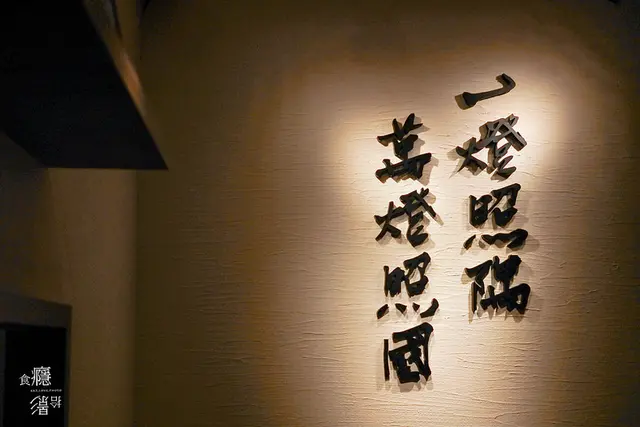 一燈照隅
萬燈照國
食癮
拾影